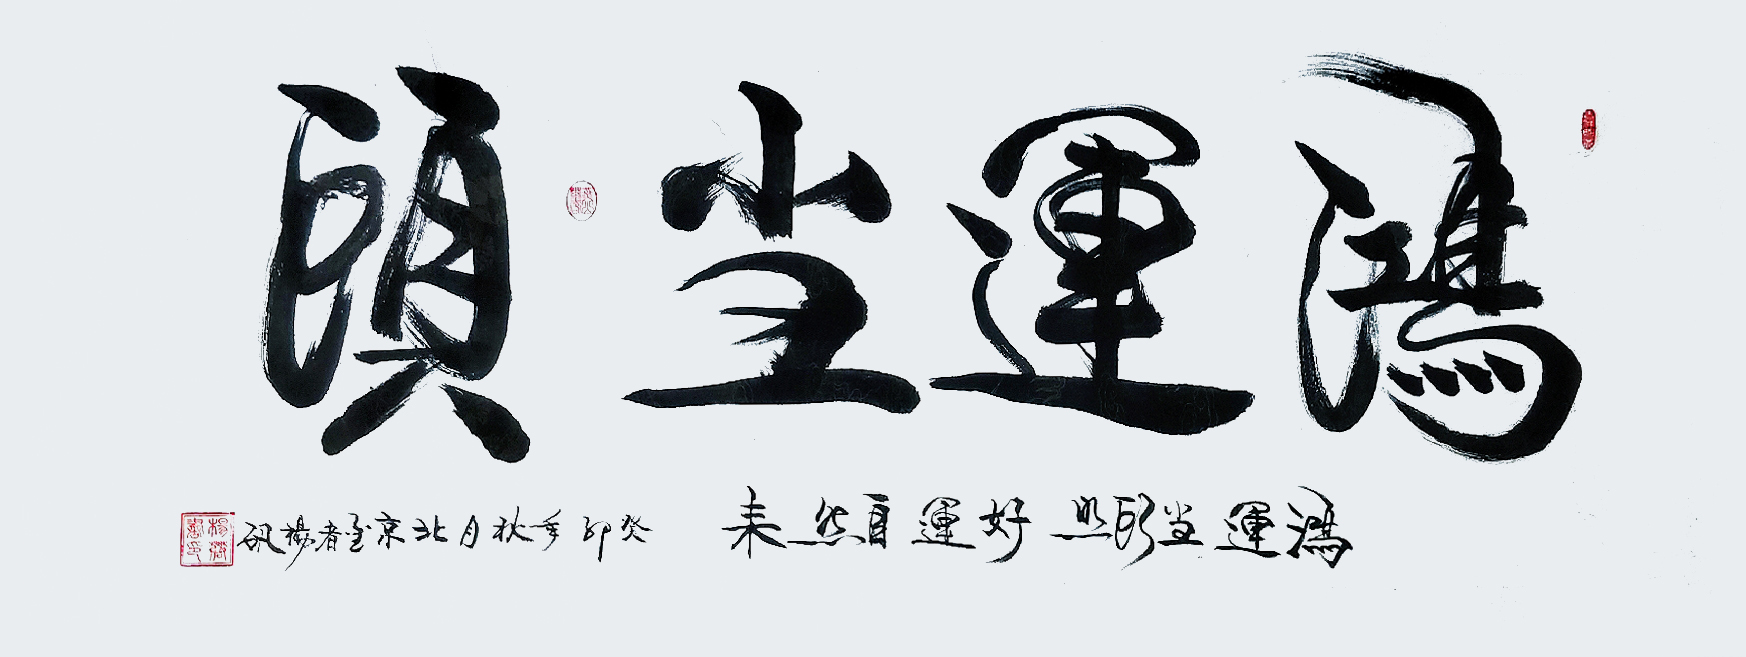 鴻運當頭
鴻運當頭照 好運自然来 癸卯年秋月北京 楊